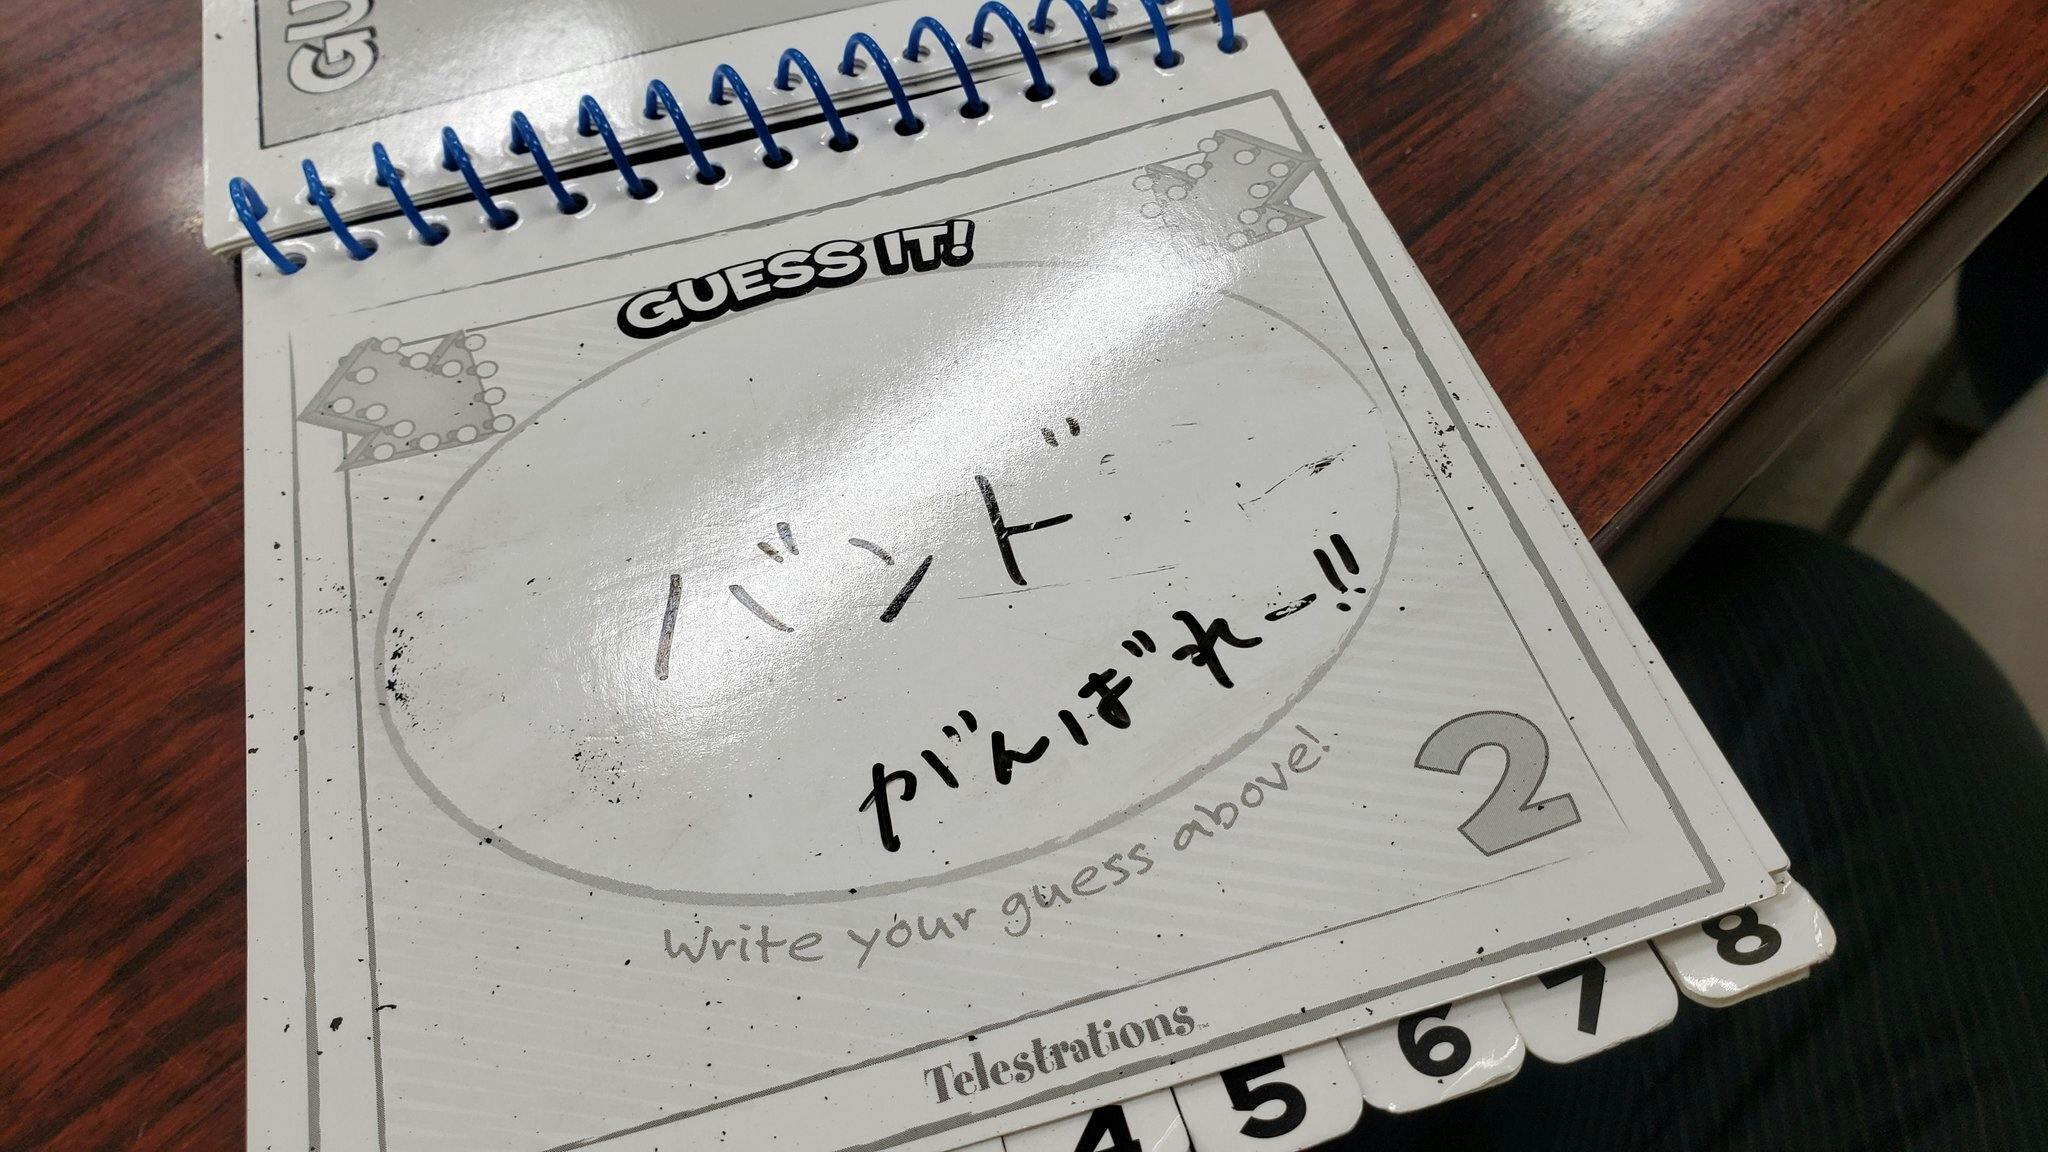 GU
GUESS IT!
バンド
がんばれー!!
Write your guess above!
2
Telestrations™
4
5
6
7
8